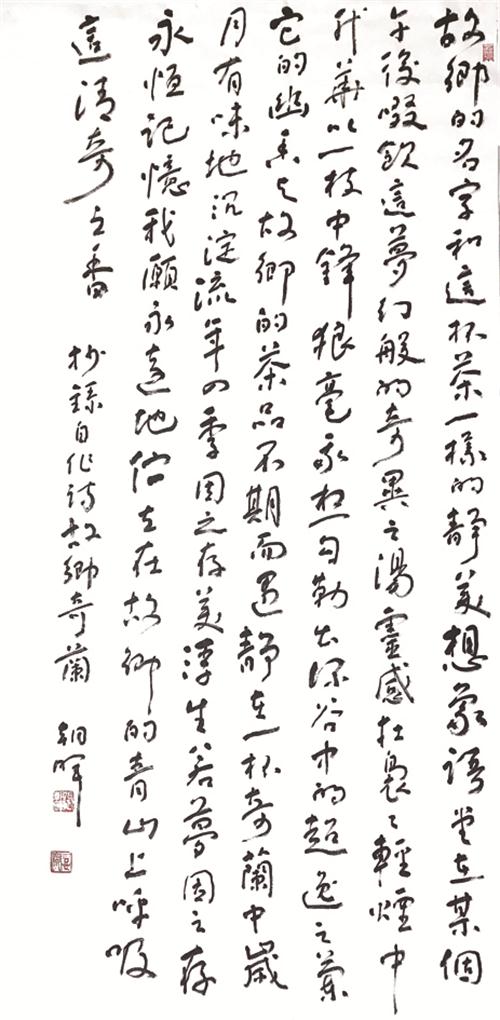 故鄉的名字和這杯茶一樣的靜美想象語堂在某個
午後啜飲這夢幻般的奇異之湯靈感在裊々輕煙中
升華以一枝中鋒狼毫我想勾勒出深谷中的超逸之蘭
它的幽香与故鄉的茶品不期而遇靜在一杯奇蘭中歲
月有味地沉淀流年四季因之存美浮生若夢因之存
永恒記憶我願永遠地佇立在故鄉的青山上呼吸
這清奇之香 抄錄自作詩故鄉奇蘭 朝暉